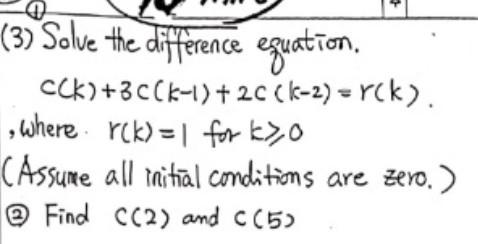 ①
(3) Solve the difference equation.
c(k)+3c(k-1)+2c(k-2)=r(k).
, where. r(k)=1 for k≥0
(Assume all initial conditions are zero.)
② Find c(2) and c(5)